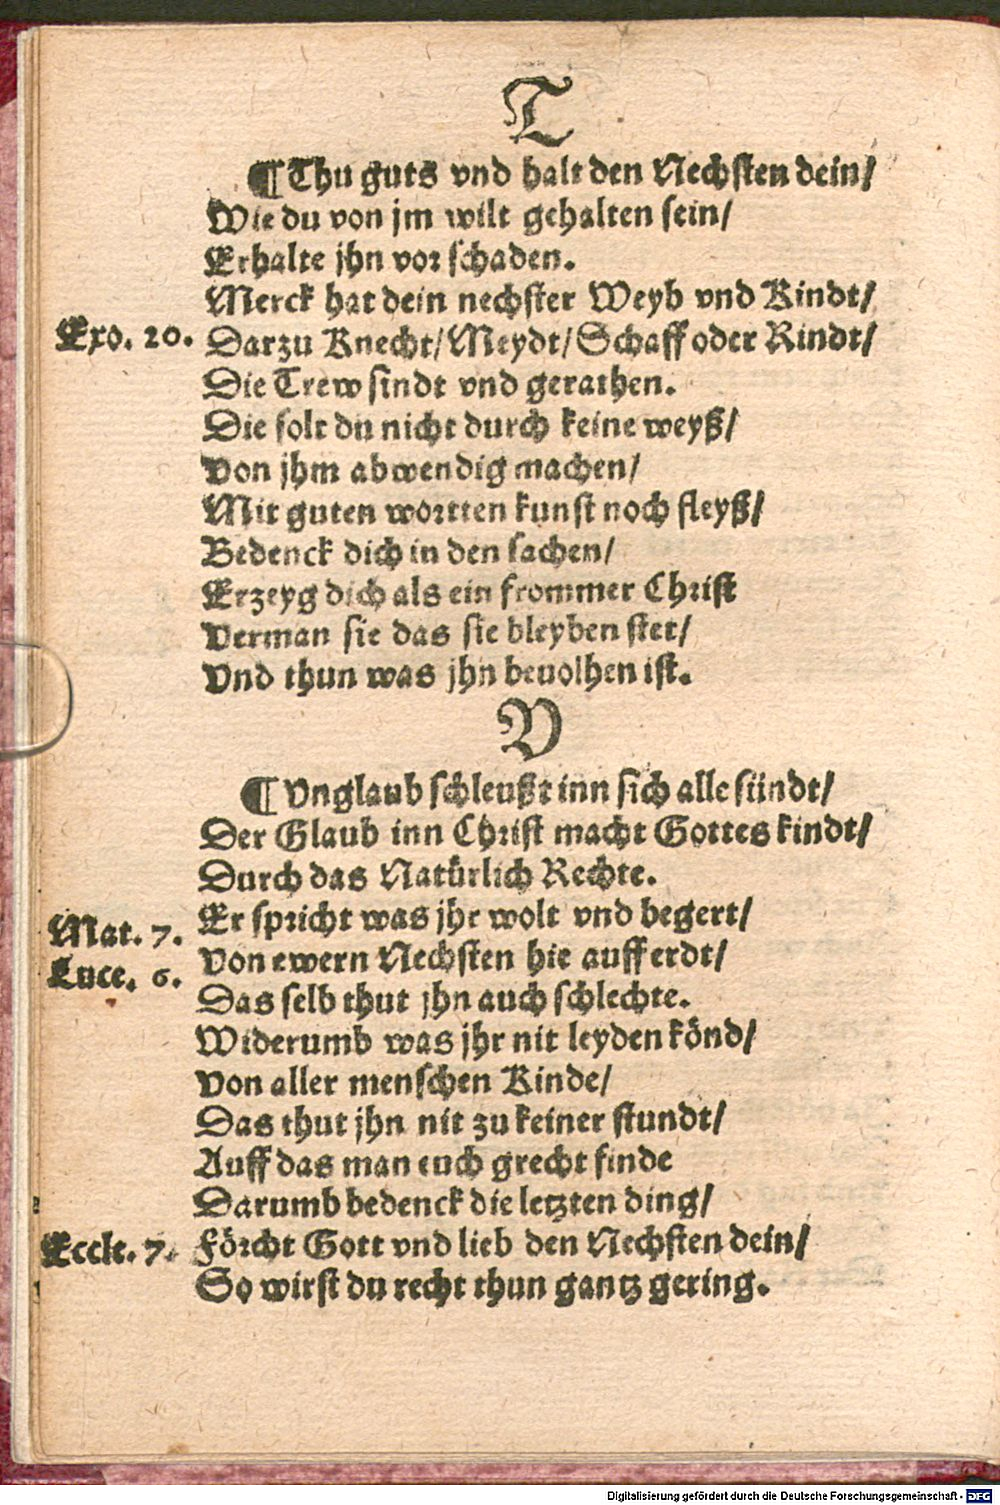 T
¶ Thu guts vnd halt den Nechsten dein/
Wie du von jm wilt gehalten sein/
Erhalte jhn vor schaden.
Merck hat dein nechster Weyb vnd Kindt/
Exo. 20. Darzu Knecht/ Meydt/ Schaff oder Rindt/
Die Trew sindt vnd gerathen.
Die solt du nicht durch keine weyß/
Von jhm abwendig machen/
Mit guten wortten kunst noch fleyß/
Bedenck dich in den sachen/
Erzeyg dich als ein frommer Christ
Verman sie das sie bleyben stet/
Vnd thun was jhn beuolhen ist.
V
¶ Vnglaub schleußt inn sich alle sündt/
Der Glaub inn Christ macht Gottes kindt/
Durch das Natürlich Rechte.
Er spricht was jhr wolt vnd begert/
Mat. 7.
Von ewern Nechsten hie auff erdt/
Luce. 6.
Das selb thut jhn auch schlechte.
Widerumb was jhr nit leyden könd/
Von aller menschen Kinde/
Das thut jhn nit zu keiner stundt/
Auff das man euch grecht finde
Darumb bedenck die letzten ding/
Eccle. 7. Förcht Gott vnd lieb den Nechsten dein/
So wirst du recht thun gantz gering.
Digitalisierung gefördert durch die Deutsche Forschungsgemeinschaft - DFG